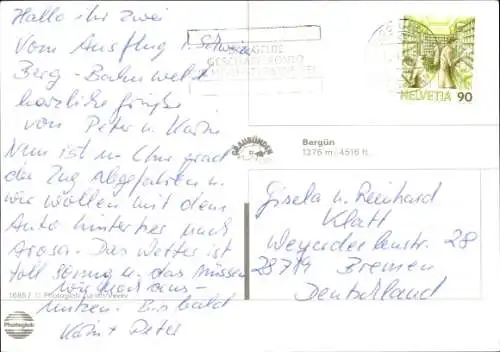 Hallo ihr Zwei
Vom Ausflug i. Schweiz
Berg - Bahnwelt
herzliche Grüße
von Peter u. Karin
Nun ist in Chur grad
der Zug abgefahren u.
wir wollen mit dem
Auto hinterher nach
Arosa. Das Wetter ist
toll sonnig u. das müssen
wir doch aus-
nutzen. Bis bald
Karin + Peter
1685 / © Photoglob Zürich/Vevey
Photoglob
HELVETIA 90
GRAUBÜNDEN
Bergün
1376 m. 4516 ft.
Gisela u. Reinhard
Klatt
28
28719 Bremen
Deutschland